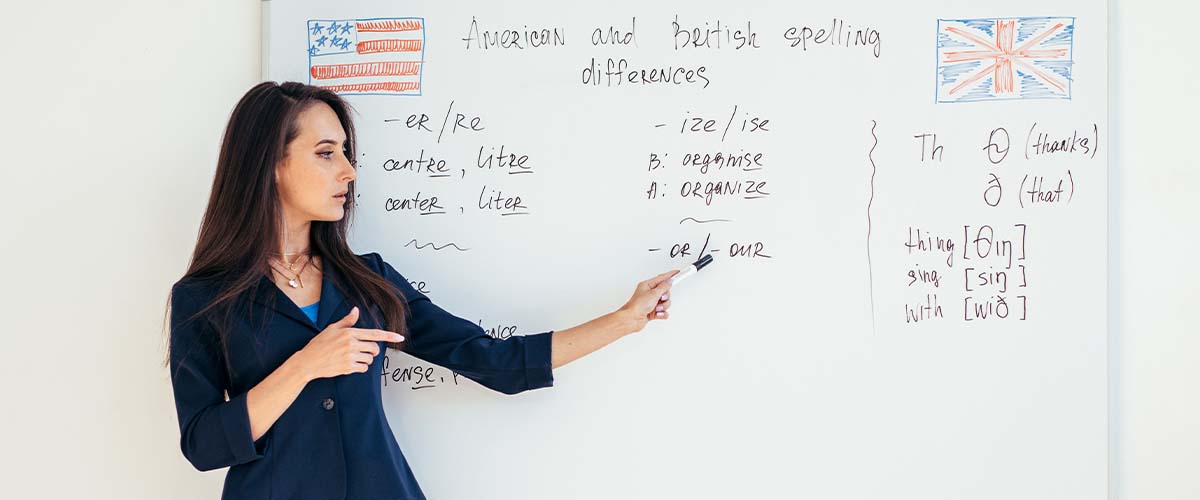 American and British spelling
differences
-ER/RE
centre, litre
center, liter
- ize/ise
B: organise
A: organize
- or/- our
Th Θ (thanks)
ð (that)
thing [Θıŋ]
sing [siŋ]
with [wið]